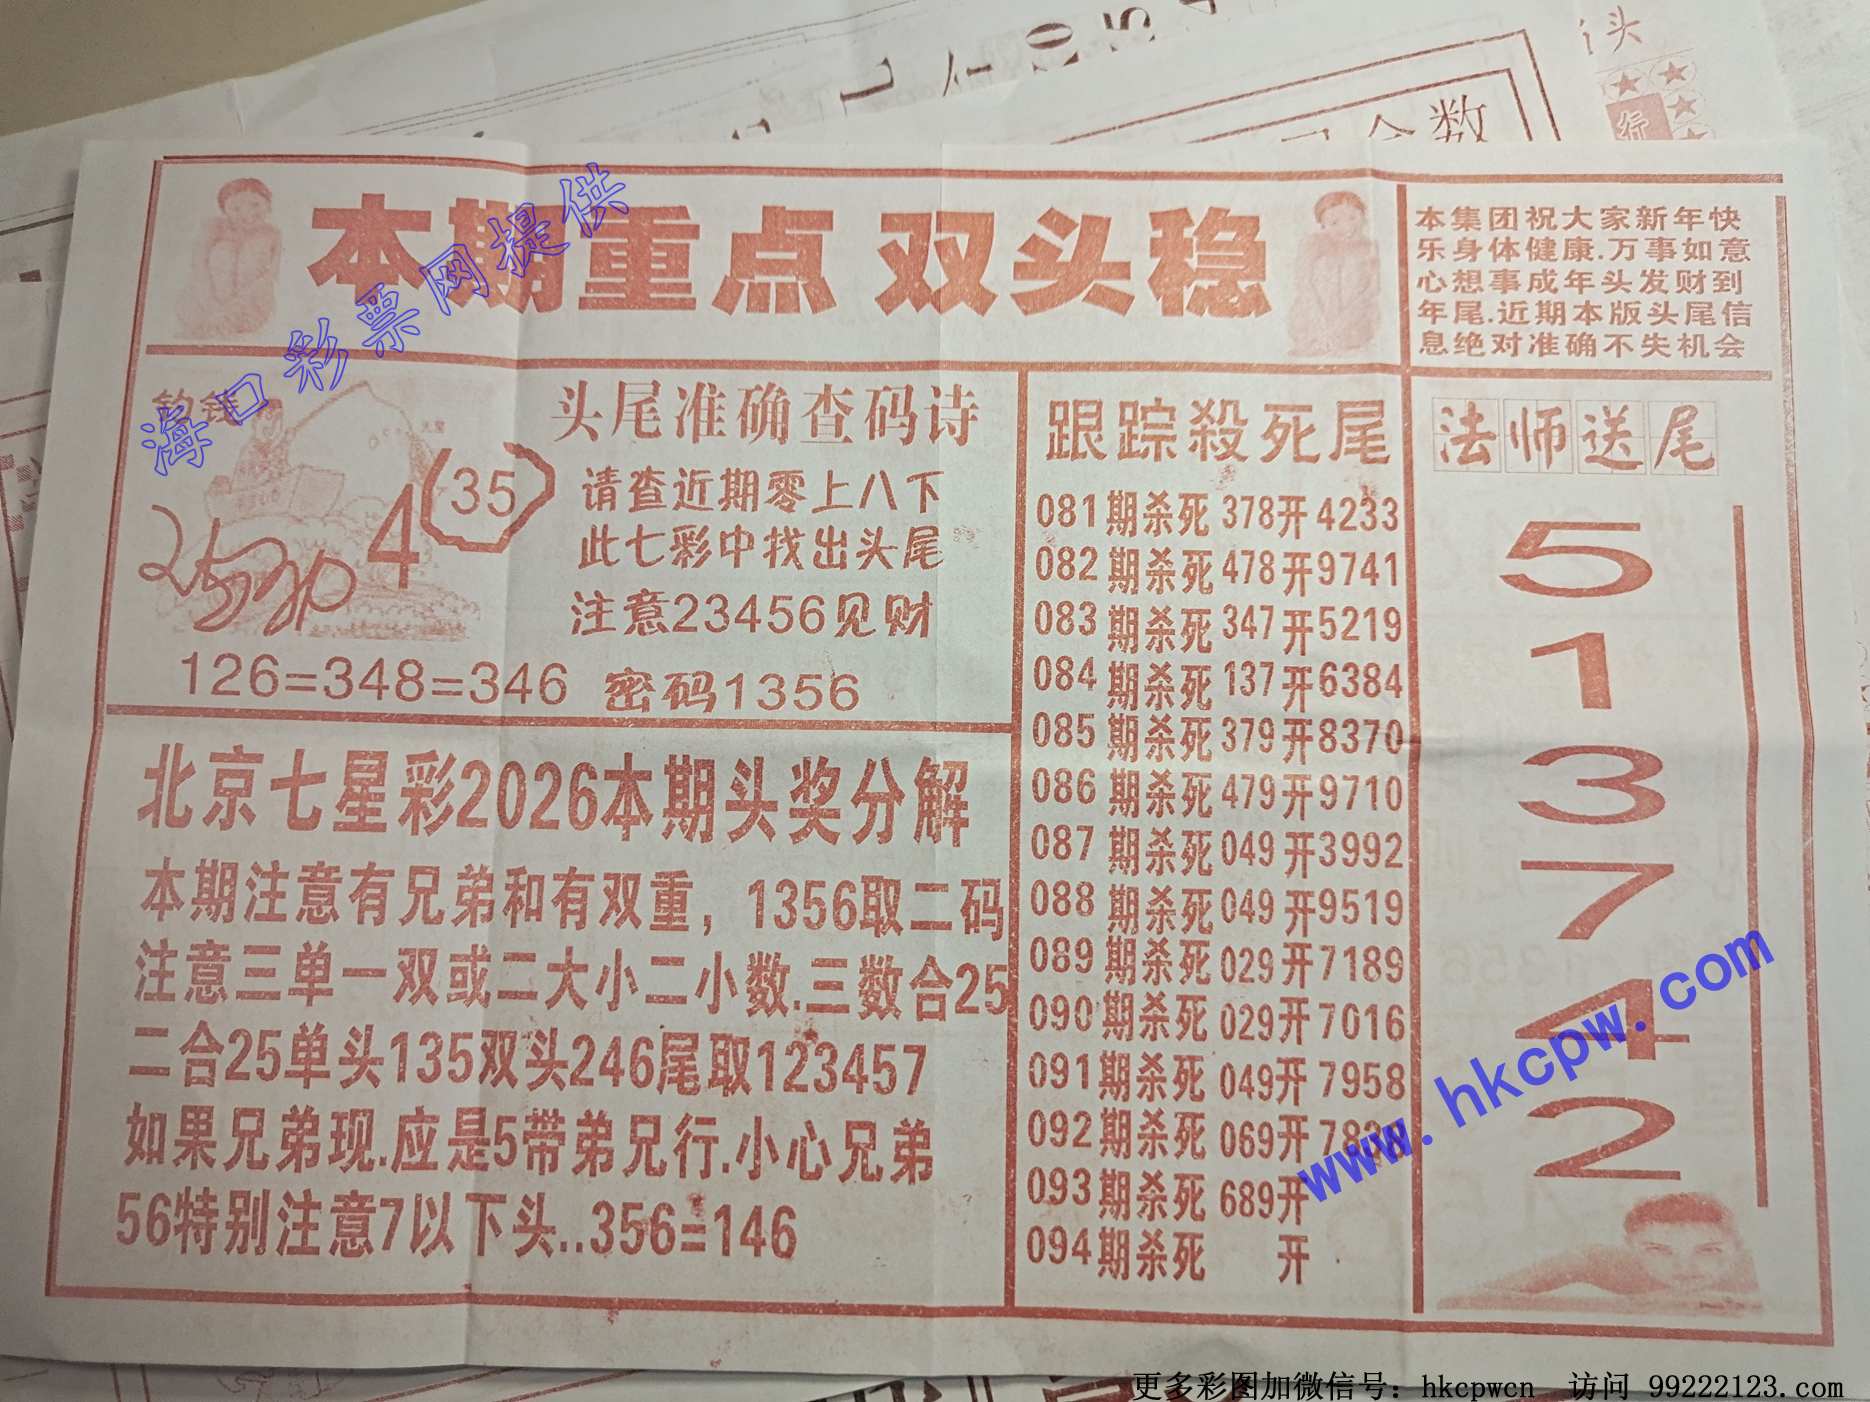 本期重点 双头稳
本集团祝大家新年快
乐身体健康.万事如意
心想事成年头发财到
年尾.近期本版头尾信
息绝对准确不失机会
海口彩票网提供
头尾准确查码诗
4
(35)
请查近期零上八下
此七彩中找出头尾
注意23456见财
126=348=346 密码1356
北京七星彩2026本期头奖分解
本期注意有兄弟和有双重，1356取二码
注意三单一双或二大小二小数.三数合25
二合25单头135双头246尾取123457
如果兄弟现.应是5带弟兄行.小心兄弟
56特别注意7以下头..356=146
跟踪殺死尾
081期杀死378开4233
082期杀死478开9741
083期杀死347开5219
084期杀死137开6384
085期杀死379开8370
086期杀死479开9710
087期杀死049开3992
088期杀死049开9519
089期杀死029开7189
090期杀死029开7016
091期杀死049开7958
092期杀死069开
093期杀死689开
094期杀死 开
法师送尾
5
1
3
7
4
2
www.hkcpw.com
更多彩图加微信号：hkcpwcn 访问 99222123.com